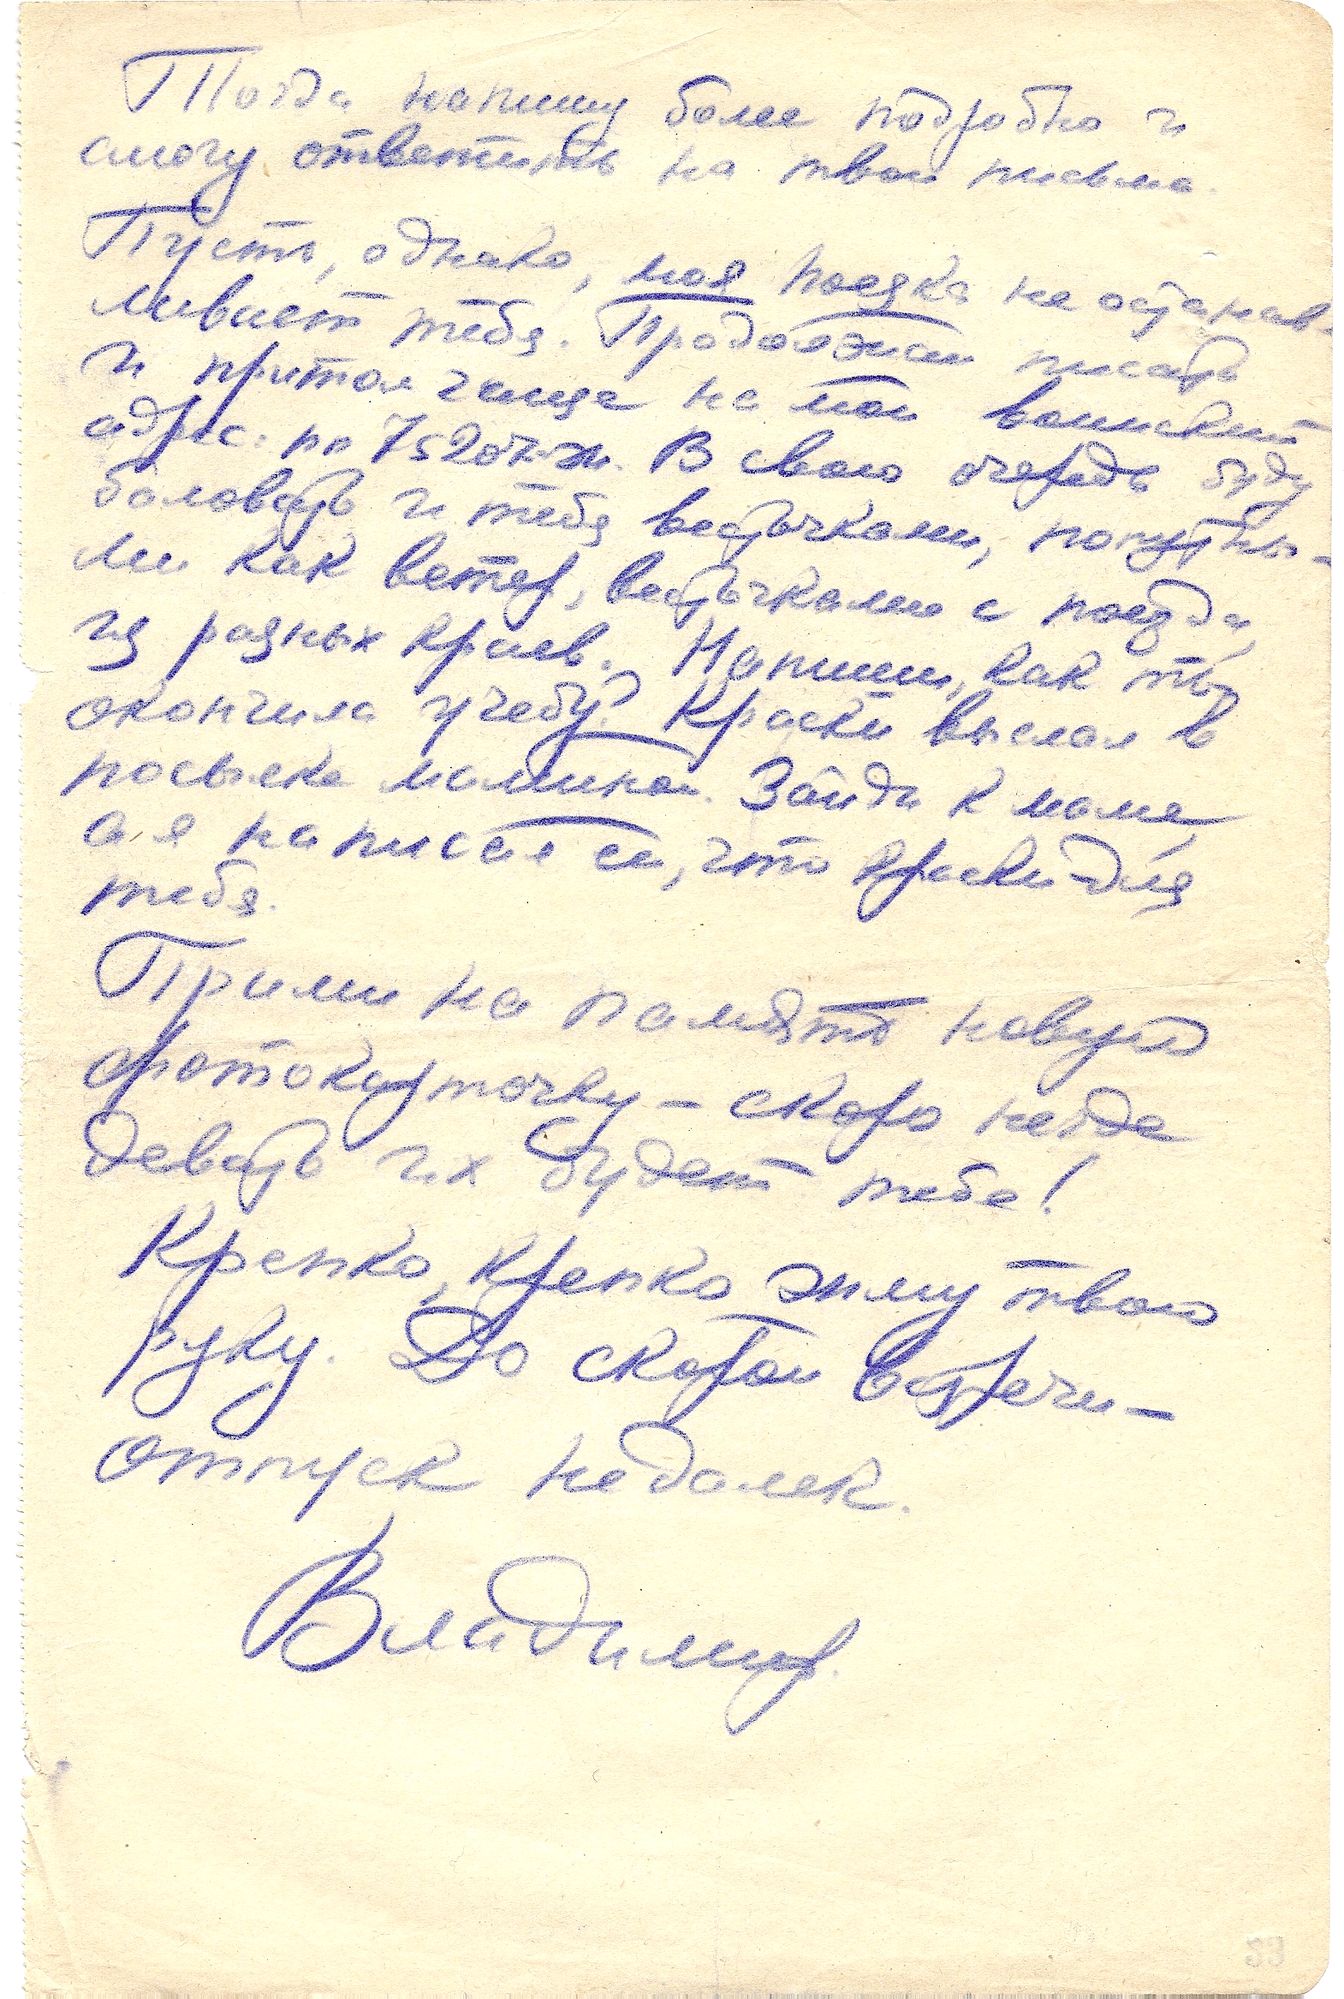 Тогда напишу более подробно и
смогу ответить на твои письма.
Пусть, однако, моя поездка не останав-
ливает тебя. Продолжай писать
и притом чаще на мой воинский
адрес: пп 75207-ж. В свою очередь буду
баловать и тебя весточками, попутны-
ми как ветер, весточками с поезда,
из разных краев. Напиши, как ты
окончила учебу? Краски выслал в
посылке маминой. Зайди к маме,
а я написал ей, что краски-для
тебя.
Прими на память новую
фотокарточку – скоро негде
девать их будет тебе!
Крепко, крепко жму твою
руку. До скорой встречи –
отпуск недалек.
Владимир.
33